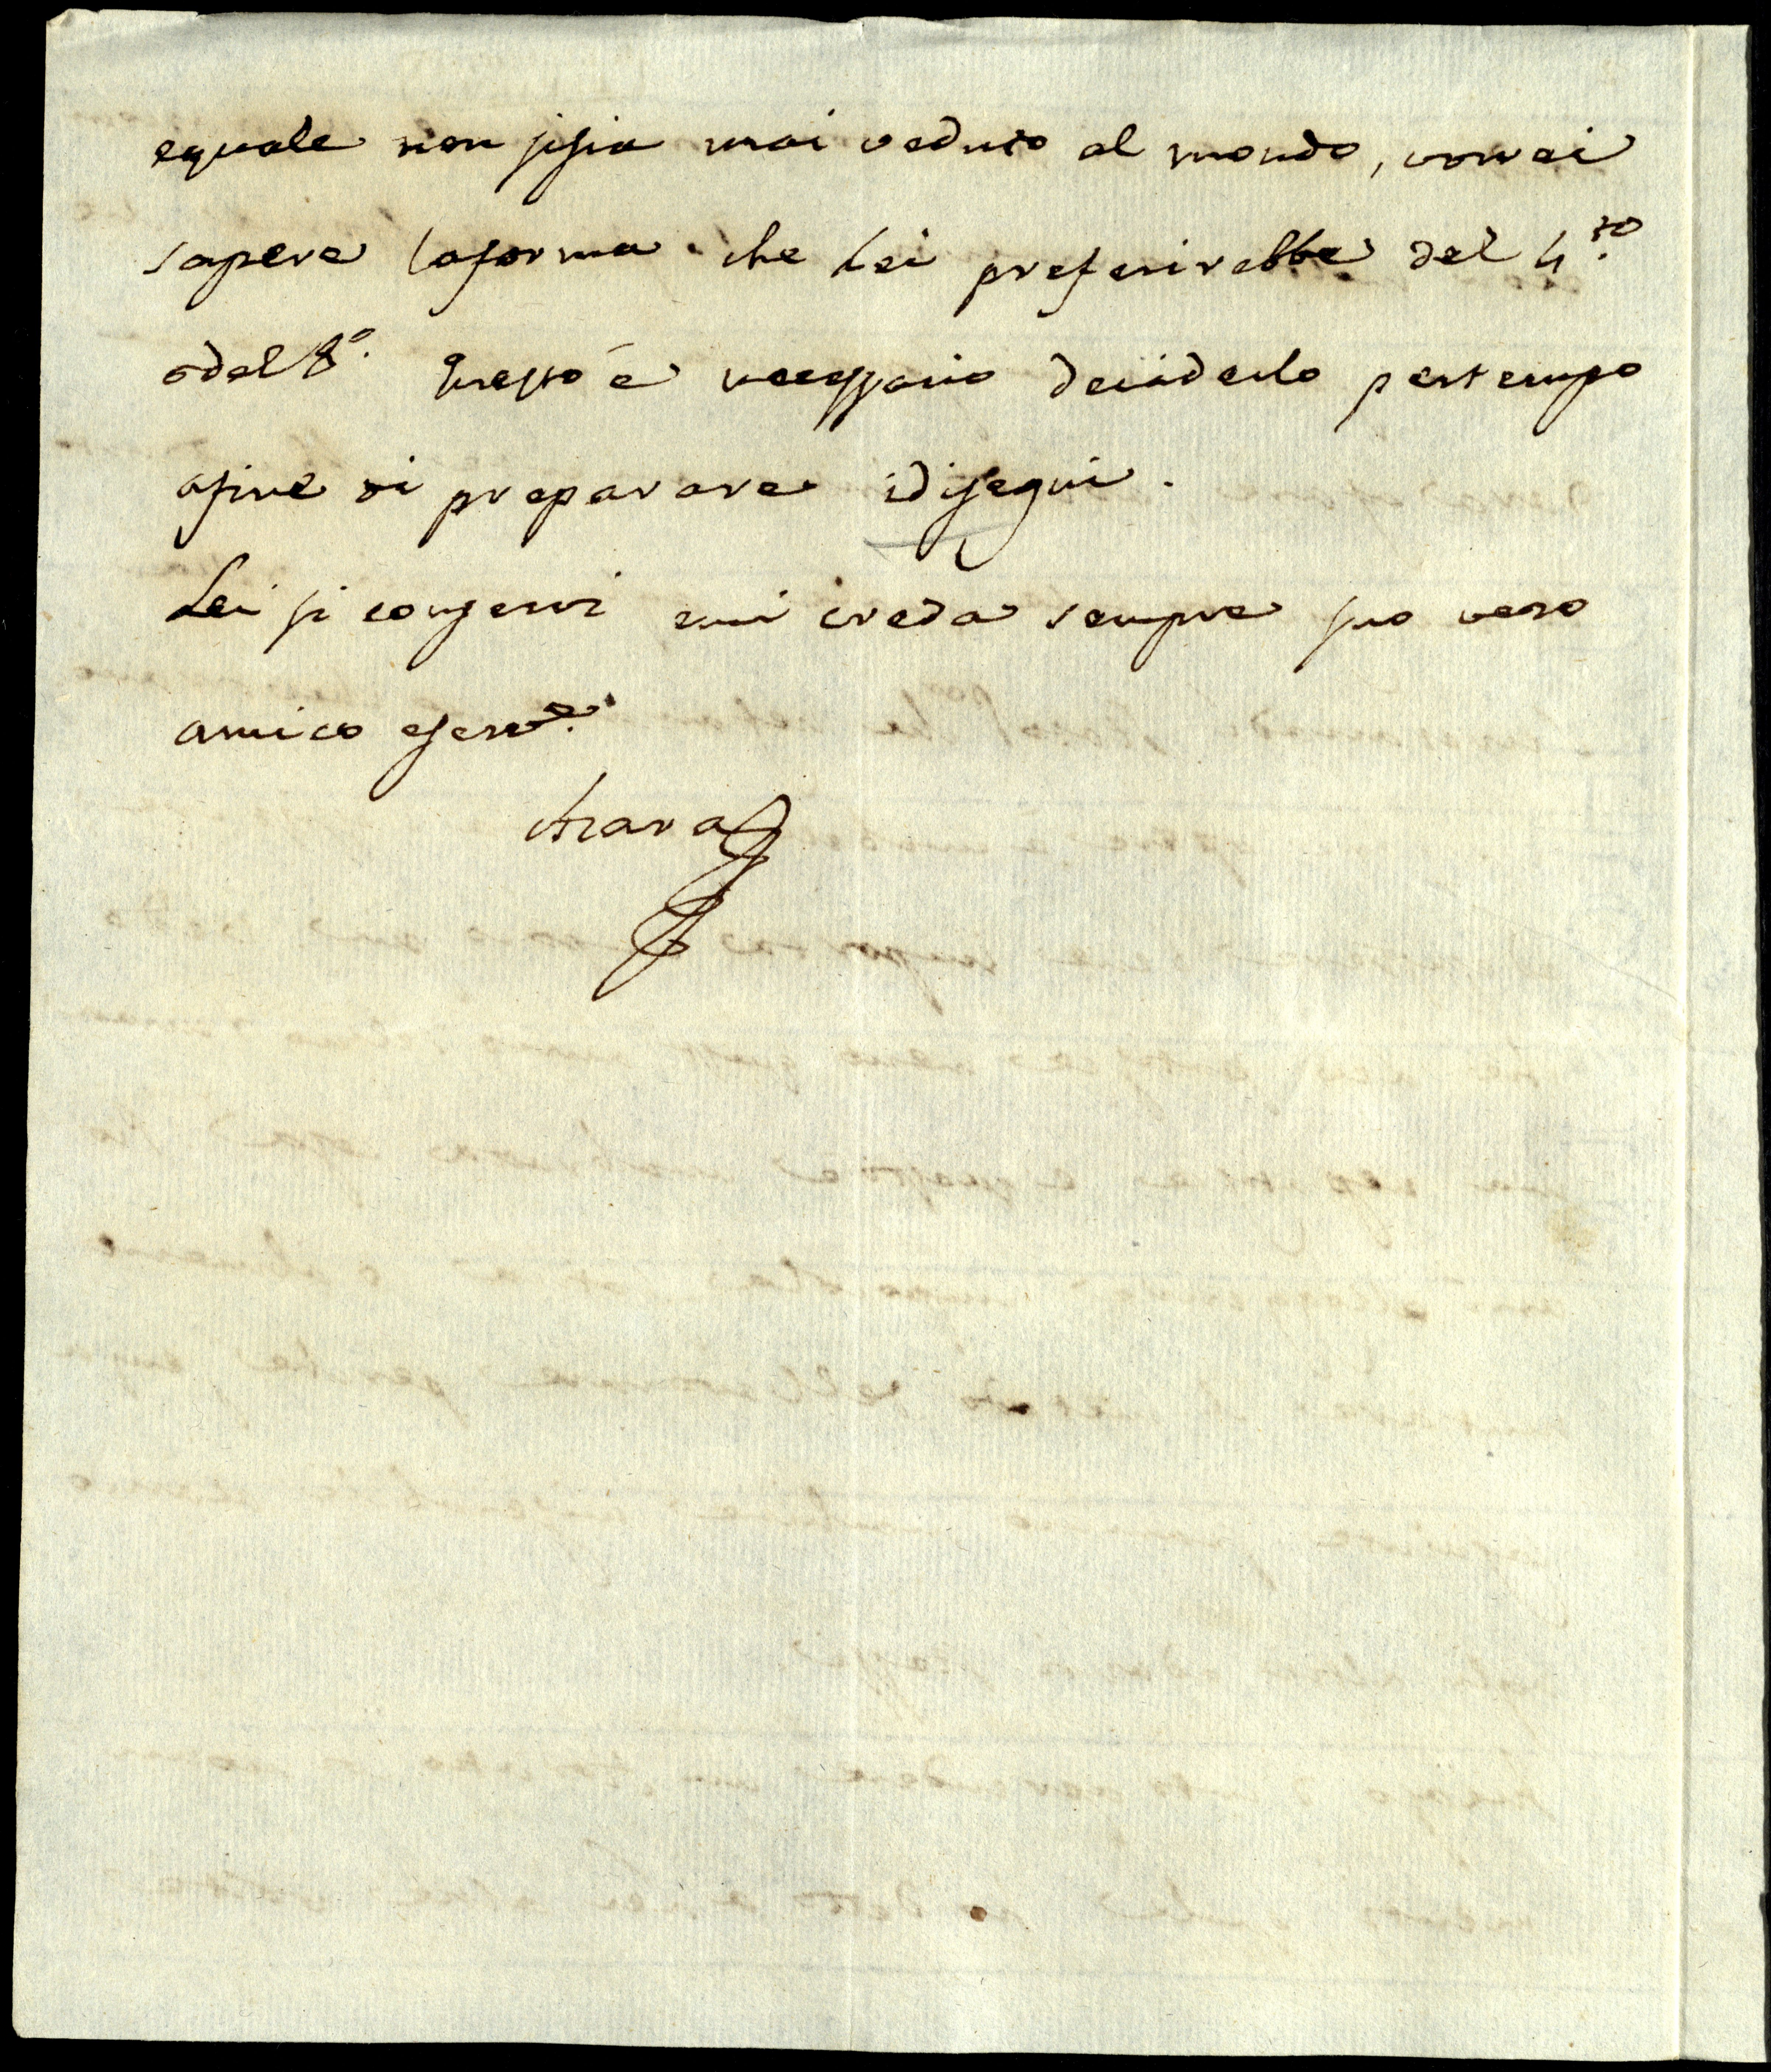 equale non sisia mai veduto al mondo, vorrei
sapere laforma che Lei preferirebbe del 4.to
odel 8.o Questo é necessario deciderlo pertempo
afine di preparare idisegni.
Lei si conservi emi creda sempre suo vero
amico eserv.e
Azara